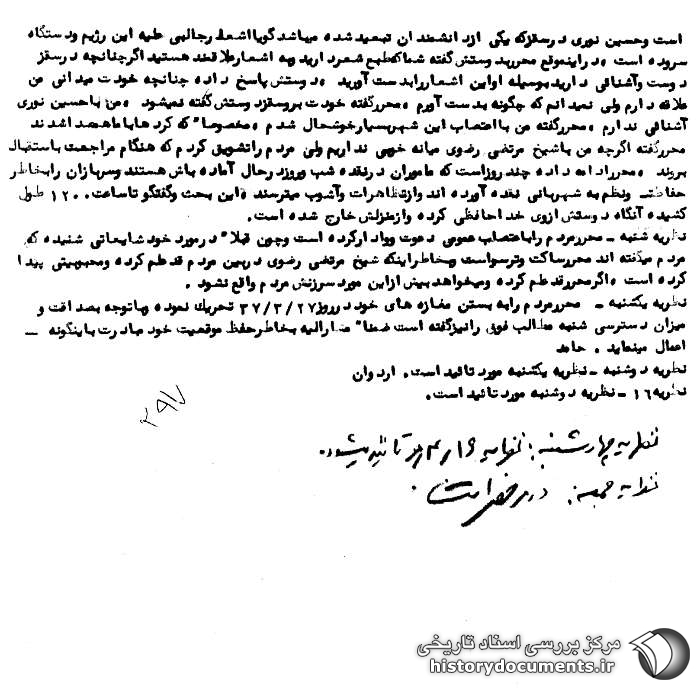 است وحسین نوری درسقزکه یکی ازدانشمندان تبعید شده میباشد گویا اشعار جالبی علیه این رژیم ودستگاه
سروده است ه دراینموقع محرر بدوستش گفته شماکه طبع شعر دارید وبه اشعارعلاقمند هستید اگرچنانچه درسقز
دوست وآشنائی دارید بوسیله اواین اشعاررا بدست آورید ه دوستش پاسخ داده چنانچه خودت میدانی من
علاقه دارم ولی نمیدانم که چگونه بدست آورم ه محررگفته خودت بروسقز دوستش گفته نمیشود ه من باحسین نوری
آشنائی ندارم ه محررگفته من با اعتصاب این شهربسیارخوشحال شدم ه مخصوصا" که کردها باماهمصداشدند
محررگفته اگرچه من باشیخ مرتضی رضوی میانه خوبی نداریم ولی مردم راتشویق کردم که هنگام مراجعت باستقبال
بروند ه محررادامه داده چند روزاست که ماموران درنقده شب وروزدرحال آماده باش هستند وسربازان رابخاطر
حفاظت ونظم به شهربانی نقده آورده اند وازتظاهرات وآشوب میترسند ه این بحث وگفتگو تاساعت ۱۲۰۰ طول
کشیده آنگاه دوستش ازوی خداحافظی کرده وازمنزلش خارج شده است.
نظریه شنبه - محررمردم رابا اعتصاب عمومی دعوت ووادارکرده است وچون قبلا" درمورد خود شایعاتی شنیده که
مردم میگفته اند محررساکت وترسواست وبخاطراینکه شیخ مرتضی رضوی دربین مردم قدعلم کرده ومحبوبیتی پیدا
کرده است ه اگرمحررقدعلم کرده ومیخواهد بیش ازاین مورد سرزنش مردم واقع نشود .
نظریه یکشنبه - محررمردم رابه بستن مغازه های خود درروز ۳۷/۳/۲۷ تحریک نموده وباتوجه بصداقت و
میزان دسترسی شنبه مطالب فوق رانیزگفته است ضمنا" مشارالیه بخاطرحفظ موقعیت خود مبادرت باینگونه -
اعمال مینماید . حامد
نظریه دوشنبه - نظریه یکشنبه مورد تائید است. اردوان
نظریه ۱۶ - نظریه دوشنبه مورد تائید است.
۳۹۷
نظریه چهارشنبه : نظریه ۱۶ هـ ۴ مورد تائید میباشد.
نظریه جمعه :
مرکز بررسی اسناد تاریخی
historydocuments.ir